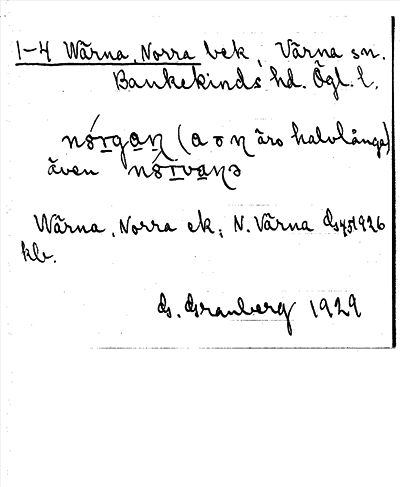 1–4 Wärna, Norra bek, Värna sn.
Bankekinds hd. Ögl. l.
(a o n äro halvlånga)
även
Wärna, Norra ek; N. Värna 1926
kb.
G. Granberg 1929